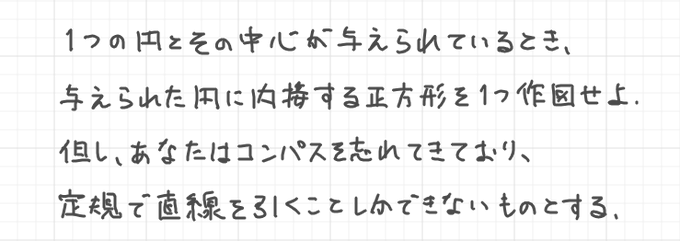 1つの円とその中心が与えられているとき、
与えられた円に内接する正方形を1つ作図せよ.
但し、あなたはコンパスを忘れてきており、
定規で直線を引くことしかできないものとする.